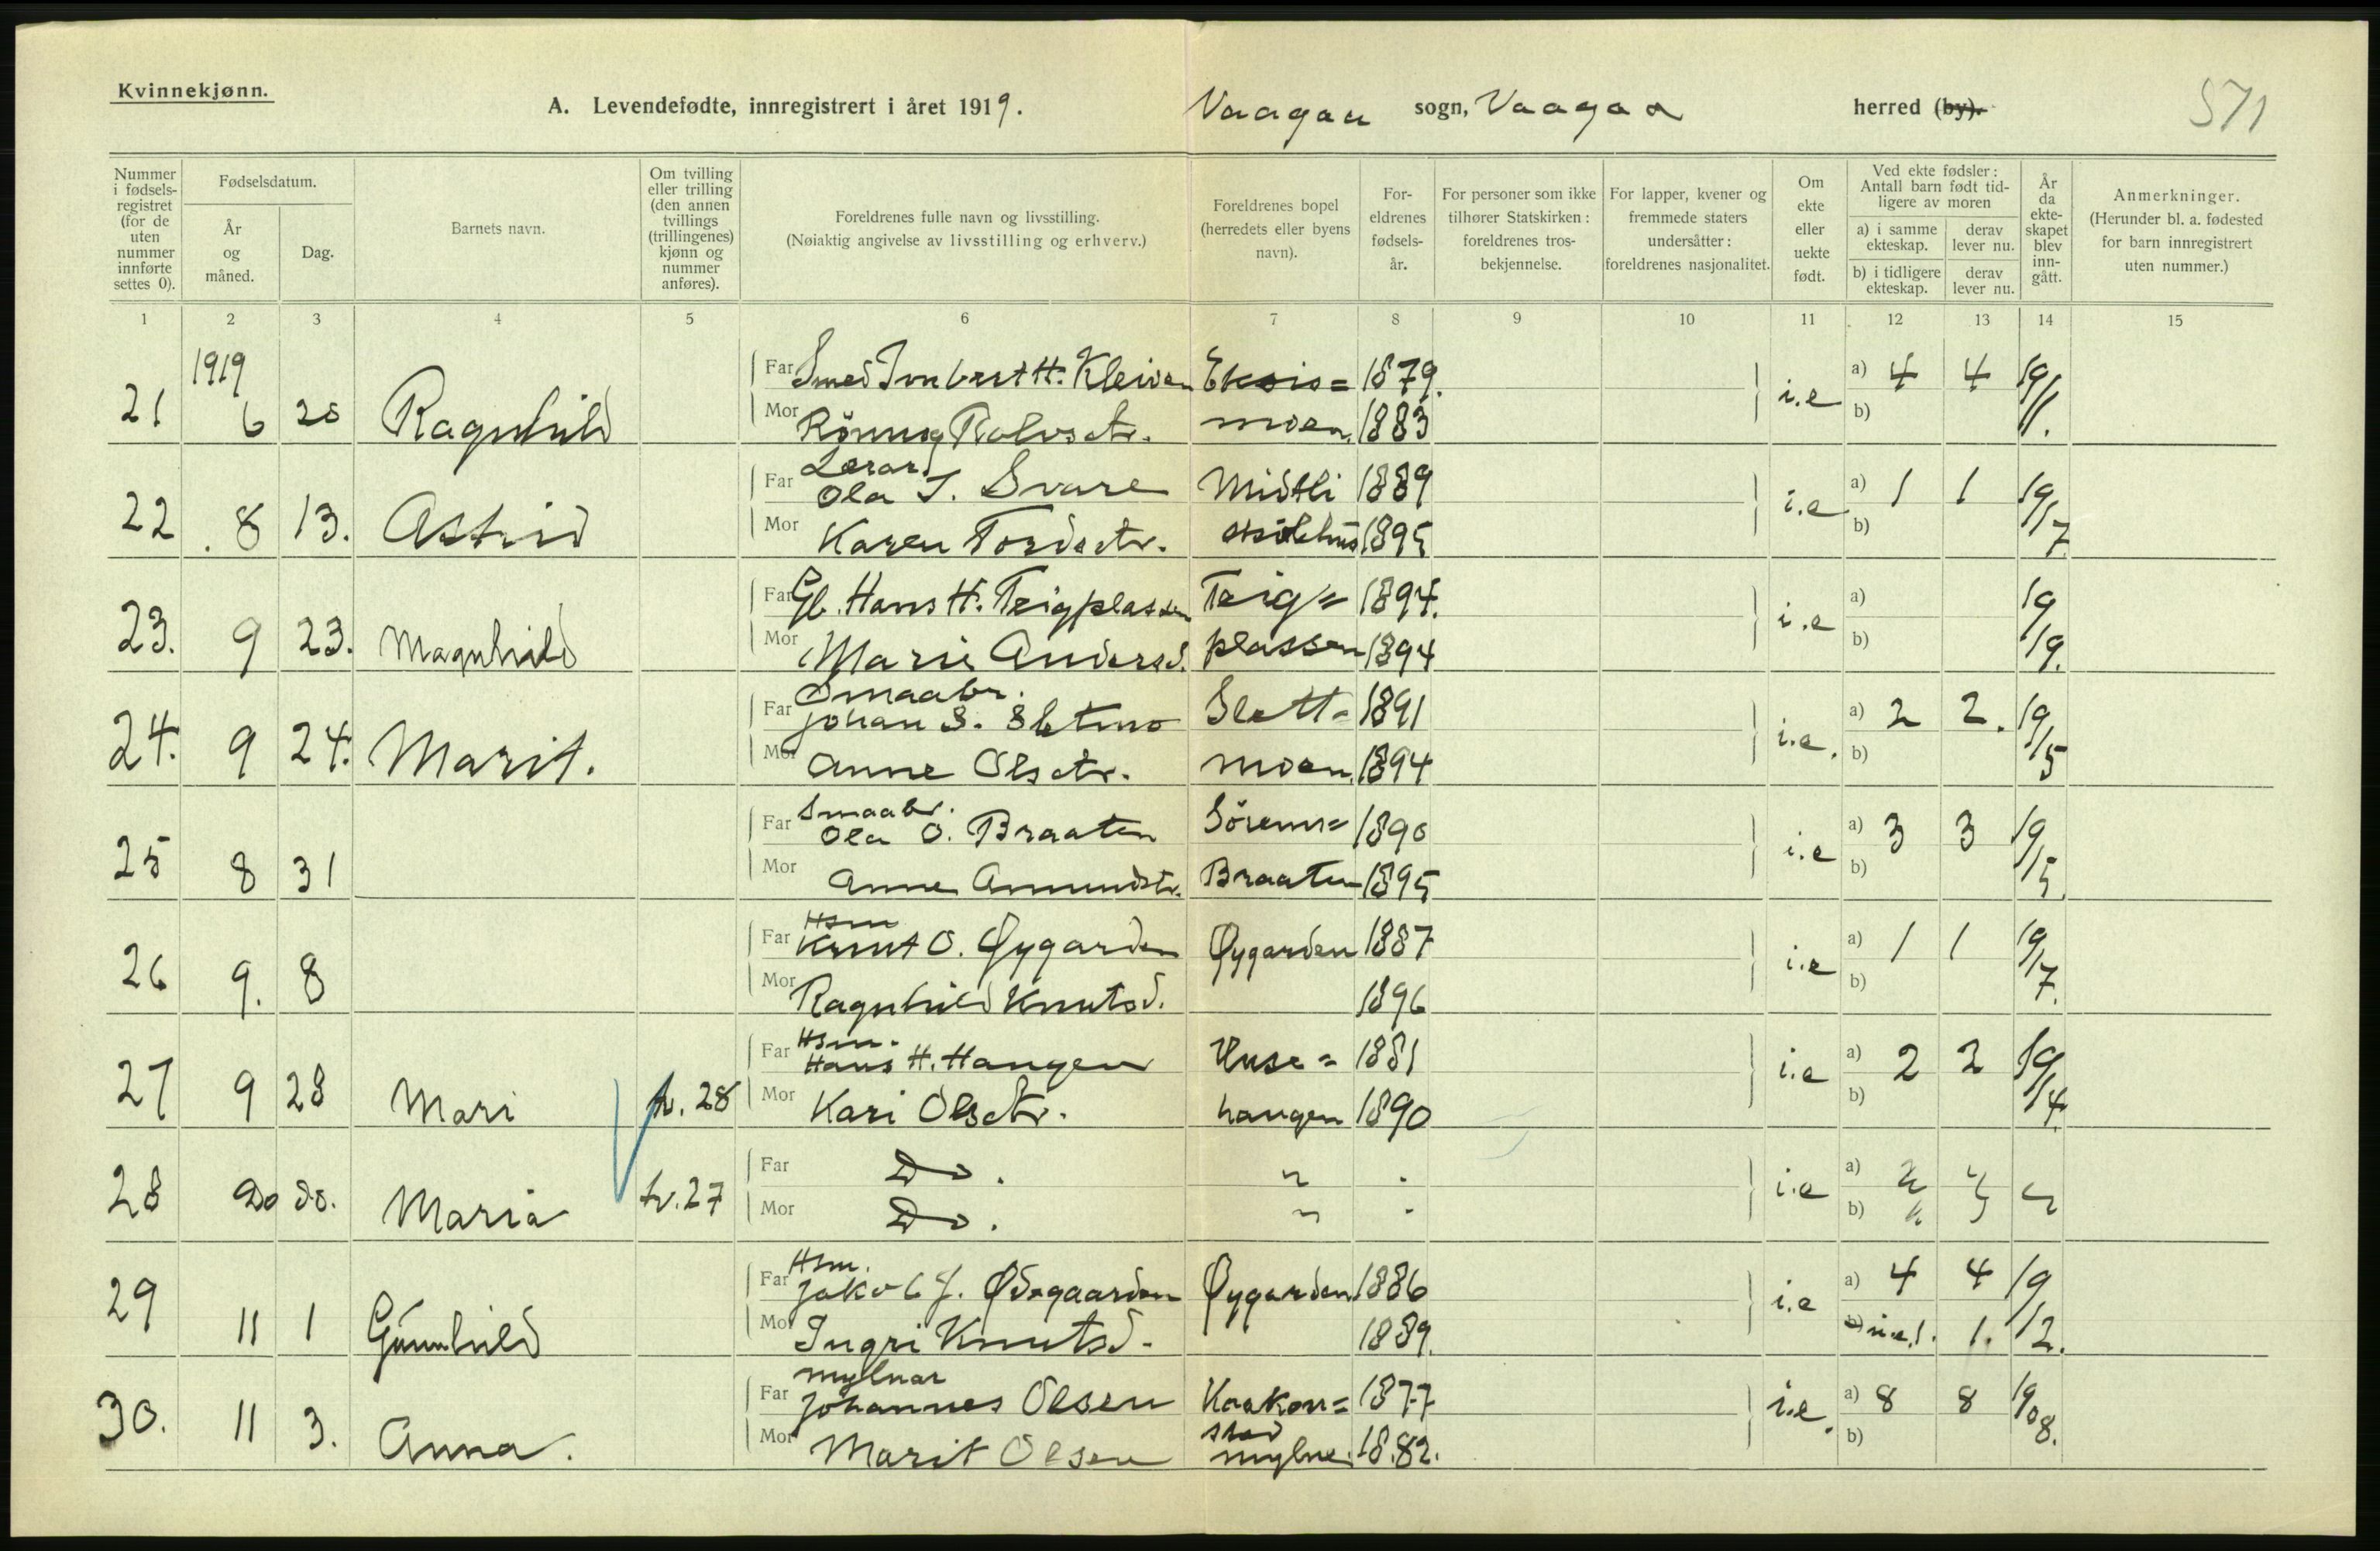 Kvinnekjønn.
A. Levendefødte, innregistrert i året 1919.
Vaagaa sogn, Vaagaa herred (by).
571
Nummer i fødsels-registret (for de uten nummer innførte settes 0).
Fødselsdatum.
År og måned.
Dag.
Barnets navn.
Om tvilling eller trilling (den annen tvillings (trillingenes) kjønn og nummer anføres).
Foreldrenes fulle navn og livsstilling.
(Nøiaktig angivelse av livsstilling og erhverv.)
Foreldrenes bopel (herredets eller byens navn).
For-eldrenes fødsels-år.
For personer som ikke tilhører Statskirken: foreldrenes tros-bekjennelse.
For lapper, kvener og fremmede staters undersåtter: foreldrenes nasjonalitet.
Om ekte eller uekte født.
Ved ekte fødsler: Antall barn født tid-ligere av moren
a) i samme ekteskap.
derav lever nu.
b) i tidligere ekteskap.
derav lever nu.
År da ekte-skapet blev inn-gått.
Anmerkninger.
(Herunder bl. a. fødested for barn innregistrert uten nummer.)
1 2 3 4 5 6 7 8 9 10 11 12 13 14 15
1919
Far Smed Imbert H. Kleiven 1879. a) 4 4 19/11.
21 6 20 Ragnhild i.e
Mor Rønnog Rolvsdtr. moen. 1883 b)
Lærar
Far Ola T. Svare Midtli 1889 a) 1 1 19/17
22 8 13. Astrid i.e
Mor Karen Tordsdtr. 1895 b)
Far Gb. Hans H. Teigplassen Teig= 1894. a) 19/19.
23. 9 23. Magnhild i.e
Mor Marie Andersd. plassen 1894 b)
Smaabr.
Far Johan S. Sletmo Slett= 1891 a) 2 2. 19/15
24. 9 24. Marit. i.e.
Mor Anne Olsdtr. moen. 1894 b)
Smaabr.
Far Ola O. Braaten 1890 a) 3 3 19/15.
25 8 31 i.e
Mor Anne Amundsdtr. Braaten 1895 b)
Hsm
Far Knut O. Øygarden Øygarden 1887 a) 1 1 19/17.
26 9. 8 i.e
Mor Ragnhild Knutsd. 1896 b)
Hsm.
Far Hans H. Haugen Huse= 1881 a) 2 2 19/14.
27 9 28 Mari tv. 28 i.e
Mor Kari Olsdtr. haugen 1890 b)
Far Do. " - a) " " "
28 Do do. Maria tv. 27 i.e
Mor Do. " - b) "
Hsm.
Far Jakob J. Ødegaarden Øygarden 1886 a) 4 4 19/12.
29 11 1 Gunnhild i.e
Mor Ingri Knutsd. 1889. u.e.1. 1.
mylnar
Far Johannes Olsen Haakon= 1877 a) 8 8 1908.
30. 11 3. Anna. i.e.
stad
Mor Marit Olsen mylne. 1882. b)